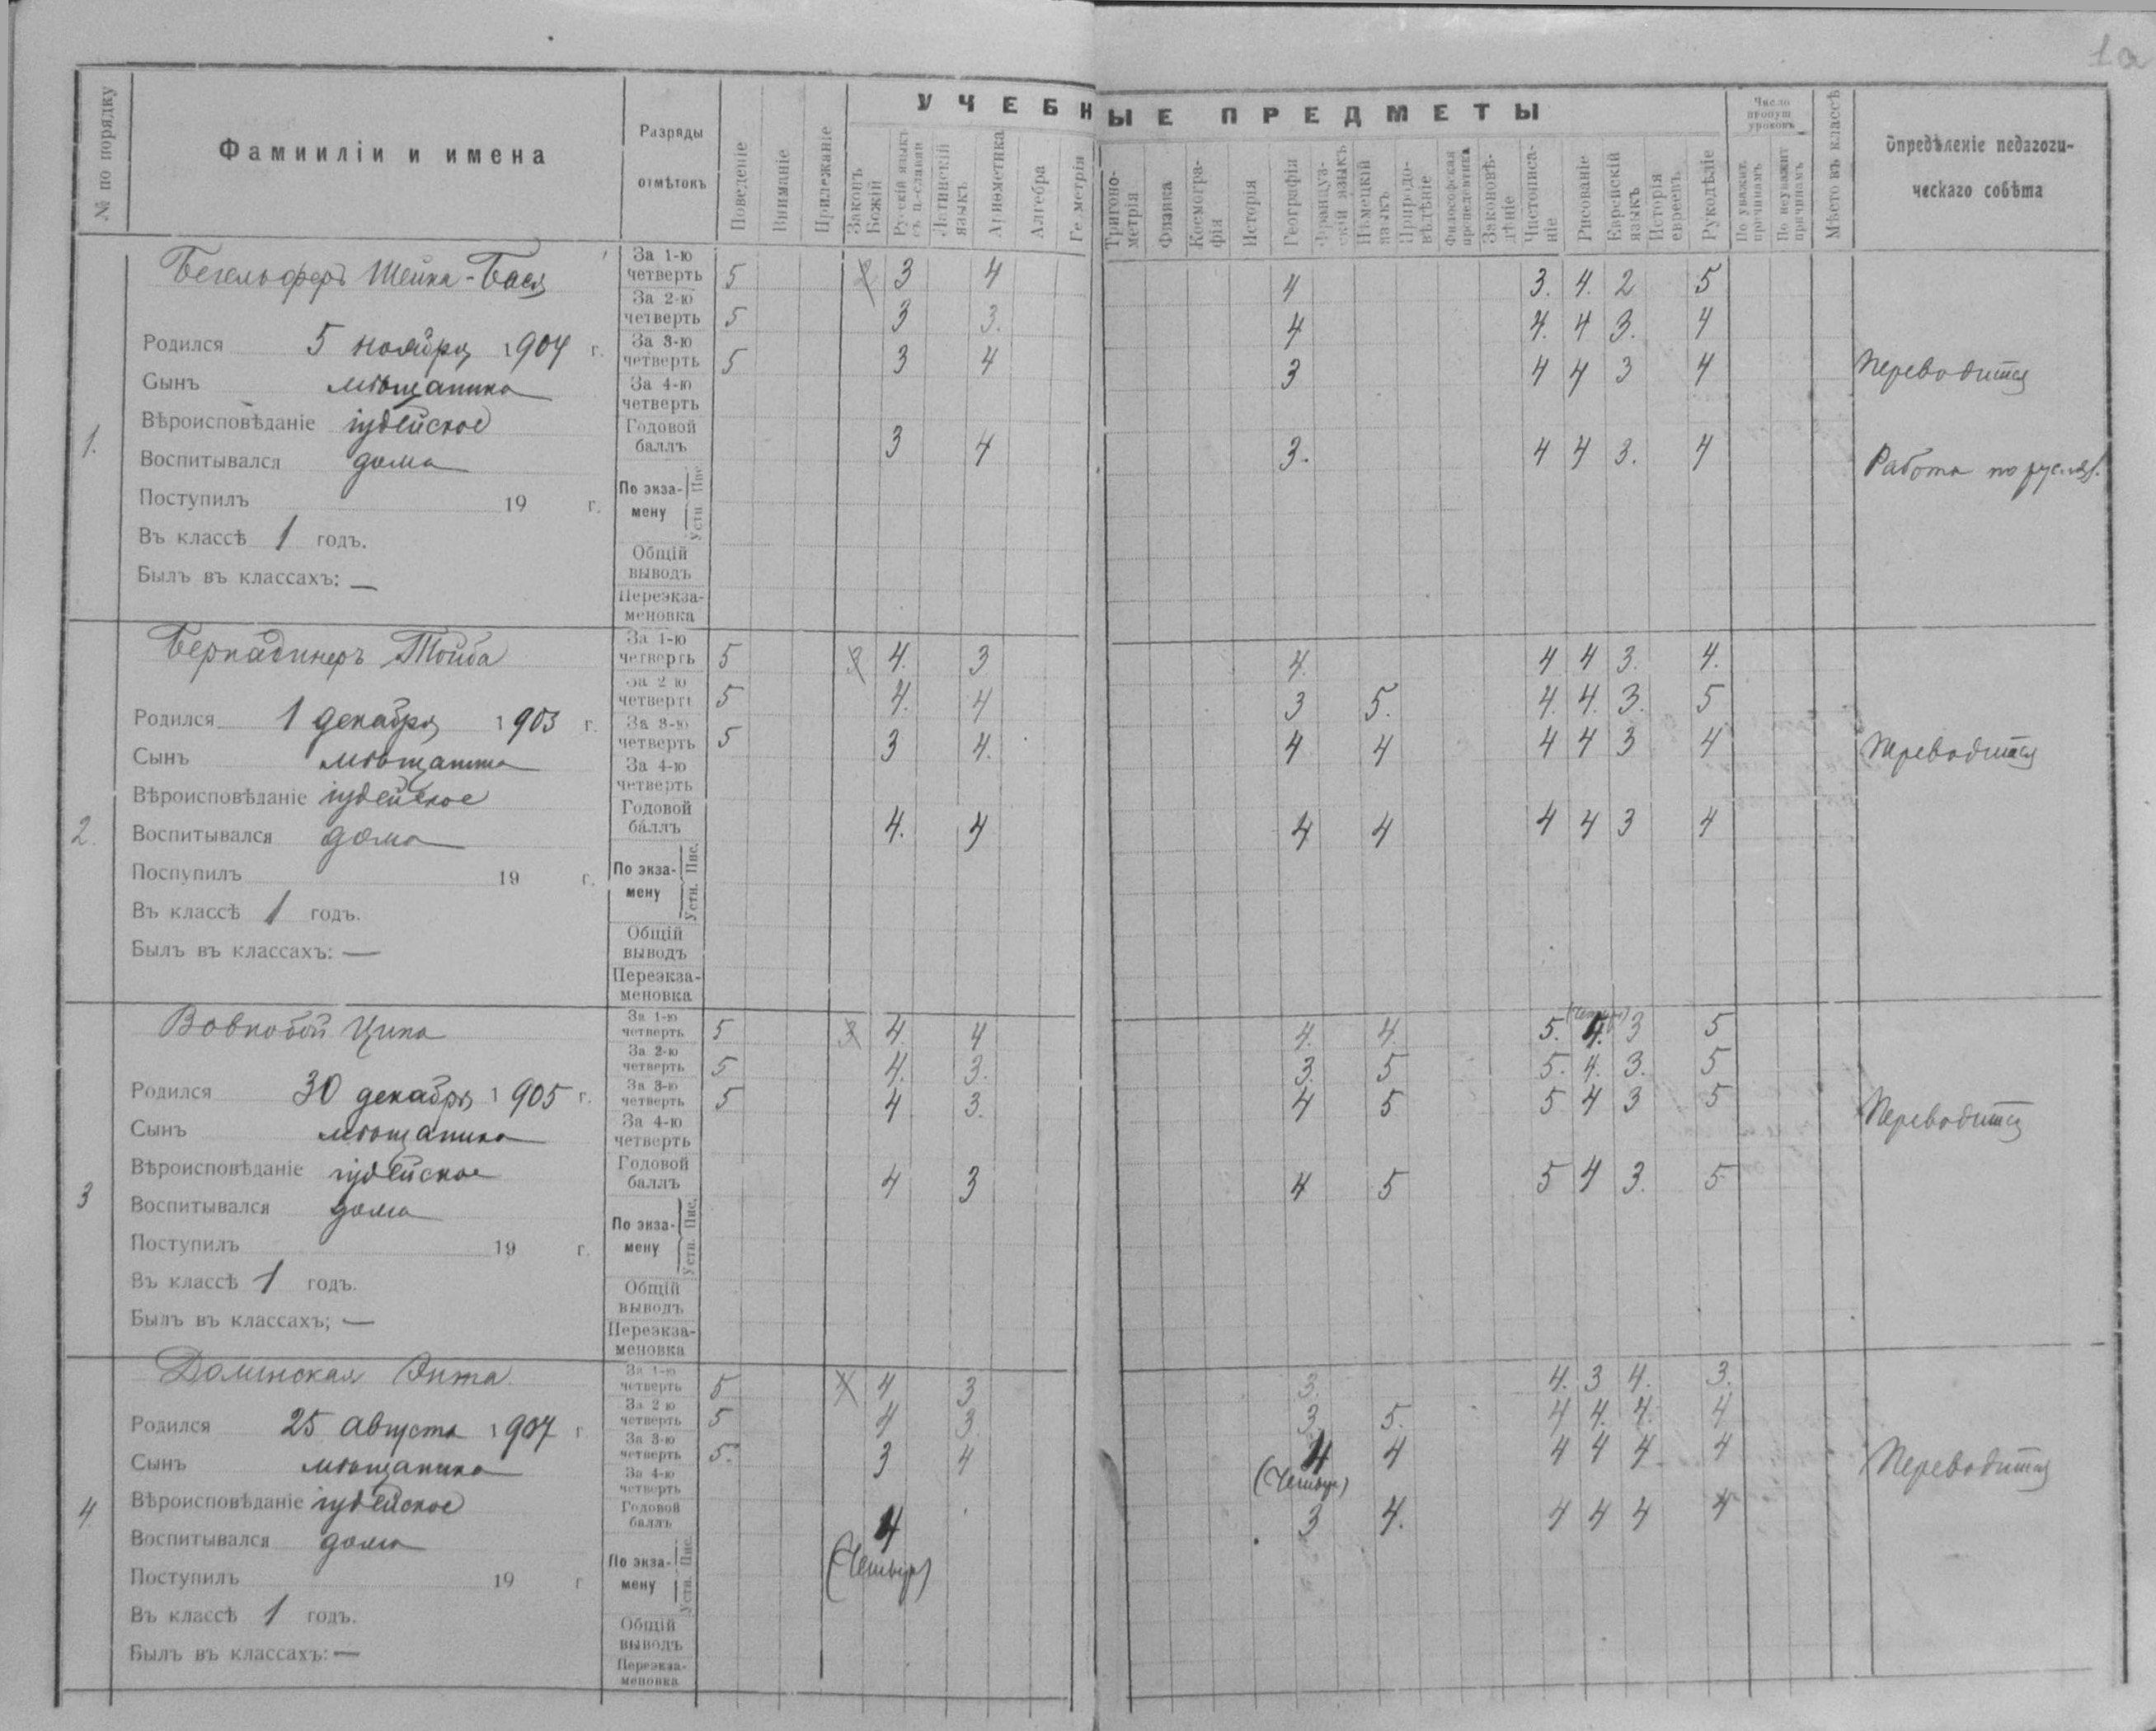 1а
УЧЕБНЫЕ ПРЕДМЕТЫ
№ по порядку
Фамииліи и имена
Разряды отмѣтокъ
Поведеніе
Вниманіе
Прилежаніе
Законъ Божій
Русскій языкъ съ ц.-славян
Латинскій языкъ
Ариѳметика
Алгебра
Геметрія
Тригоно-метрія
Физика
Космогра-фія
Исторія
Географія
Француз-скій языкъ
Нѣмецкій языкъ
Природо-вѣдѣніе
Философская пропедевтика
Законовѣ-дѣніе
Чистописа-ніе
Рисованіе
Еврейскій языкъ
Исторія евреевъ
Рукодѣліе
Число пропущ уроковъ
По уважит. причинамъ
По неуважит причинамъ
Мѣсто въ классѣ
Опредѣленіе педагоги-
ческаго совѣта
1.
Бегельферъ Шейна-Бася
Родился 5 ноября 1904 г.
Сынъ мѣщанина
Вѣроисповѣданіе іудейское
Воспитывался дома
Поступилъ 19 г.
Въ классѣ 1 годъ.
Былъ въ классахъ: —
За 1-ю четверть 5 2 3 4 4 3. 4. 2 5
За 2-ю четверть 5 3 3. 4 4. 4 3. 4
За 3-ю четверть 5 3 4 3 4 4 3 4
Переводится
За 4-ю четверть
Годовой баллъ 3 4 3. 4 4 3. 4
Работа по русск яз.
По экза-мену Пис Устн
Общій выводъ
Переэкза-меновка
2.
Бернадинеръ Тойба
Родился 1 декабря 1903 г.
Сынъ мѣщанина
Вѣроисповѣданіе іудейское
Воспитывался дома
Поспупилъ 19 г.
Въ классѣ 1 годъ.
Былъ въ классахъ: —
За 1-ю четверть 5 3 4. 3 4. 4 4 3. 4.
За 2 ю четверть 5 4. 4 3 5. 4. 4. 3. 5
За 3-ю четверть 5 3 4. 4 4 4 4 3 4
Переводится
За 4-ю четверть
Годовой баллъ 4. 4 4 4 4 4 3 4
По экза-мену Пис. Устн.
Общій выводъ
Переэкза-меновка
3
Вовнобой Ципа
Родился 30 декабря 1905 г.
Сынъ мѣщанина
Вѣроисповѣданіе іудейское
Воспитывался дома
Поступилъ 19 г.
Въ классѣ 1 годъ.
Былъ въ классахъ; —
За 1-ю четверть 5 3 4. 4 4. 4. 5. 4. 3 5
За 2-ю четверть 5 4. 3. 3. 5 5. 4. 3. 5
За 3-ю четверть 5 4 3. 4 5 5 4 3 5
Переводится
За 4-ю четверть
Годовой баллъ 4 3 4 5 5 4 3. 5
По экза-мену Пис. Устн.
Общій выводъ
Переэкза-меновка
4.
Долинская Энта
Родился 25 августа 1904 г
Сынъ мѣщанина
Вѣроисповѣданіе іудейское
Воспитывался дома
Поступилъ 19 г
Въ классѣ 1 годъ.
Былъ въ классахъ: —
За 1-ю четверть 5 4 3 3. 4. 3 4. 3.
За 2 ю четверть 5 4 3. 3. 5. 4 4. 4. 4
За 3-ю четверть 5. 3 4 4 4 4 4 4 4
(Четыре)
Переводится
За 4-ю четверть
Годовой баллъ 4 3 4. 4 4 4 4
(Четыре)
По экза-мену Пис. Устн.
Общій выводъ
Переэкза-меновка